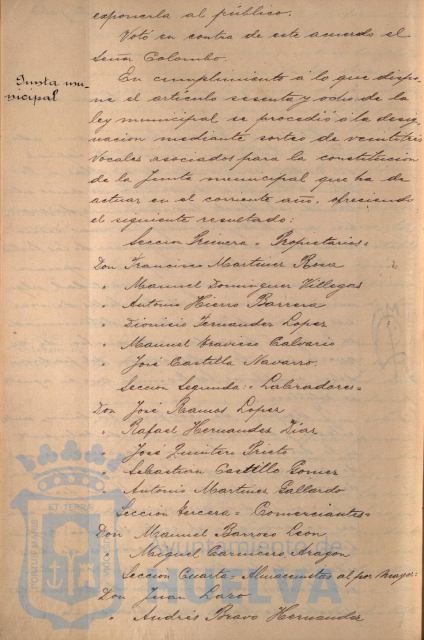 exponerla al público.
Votó en contra de este acuerdo el
Señor Colombo.
Junta mu-
nicipal
En cumplimiento á lo que dispo-
ne el artículo sesenta y ocho de la
ley municipal se procedió á la desig-
nacion mediante sorteo de veintitres
Vocales asociados para la constitucion
de la Junta municipal que ha de
actuar en el corriente año, ofreciendo
el siguiente resultado:
Seccion Primera = Propietarios =
Don Francisco Martinez Rosa
" Manuel Dominguez Villegas
" Antonio Hierro Barrera
" Dionicio Fernandez Lopez
" Manuel Travieso Calvario
" José Castilla Navarro.
Seccion Segunda = Labradores =
Don José Ramos Lopez
" Rafael Hernandez Díaz
" José Quintero Prieto
" Sebastian Castillo Gomez
" Antonio Martinez Gallardo
Seccion tercera = Comerciantes =
Don Manuel Barroso Leon
" Miguel Carrasco Aragon
Seccion Cuarta = Almacenistas al por mayor:
Don Juan Lazo
" Andrés Bravo Hernandez
Ayuntamiento de
HUELVA